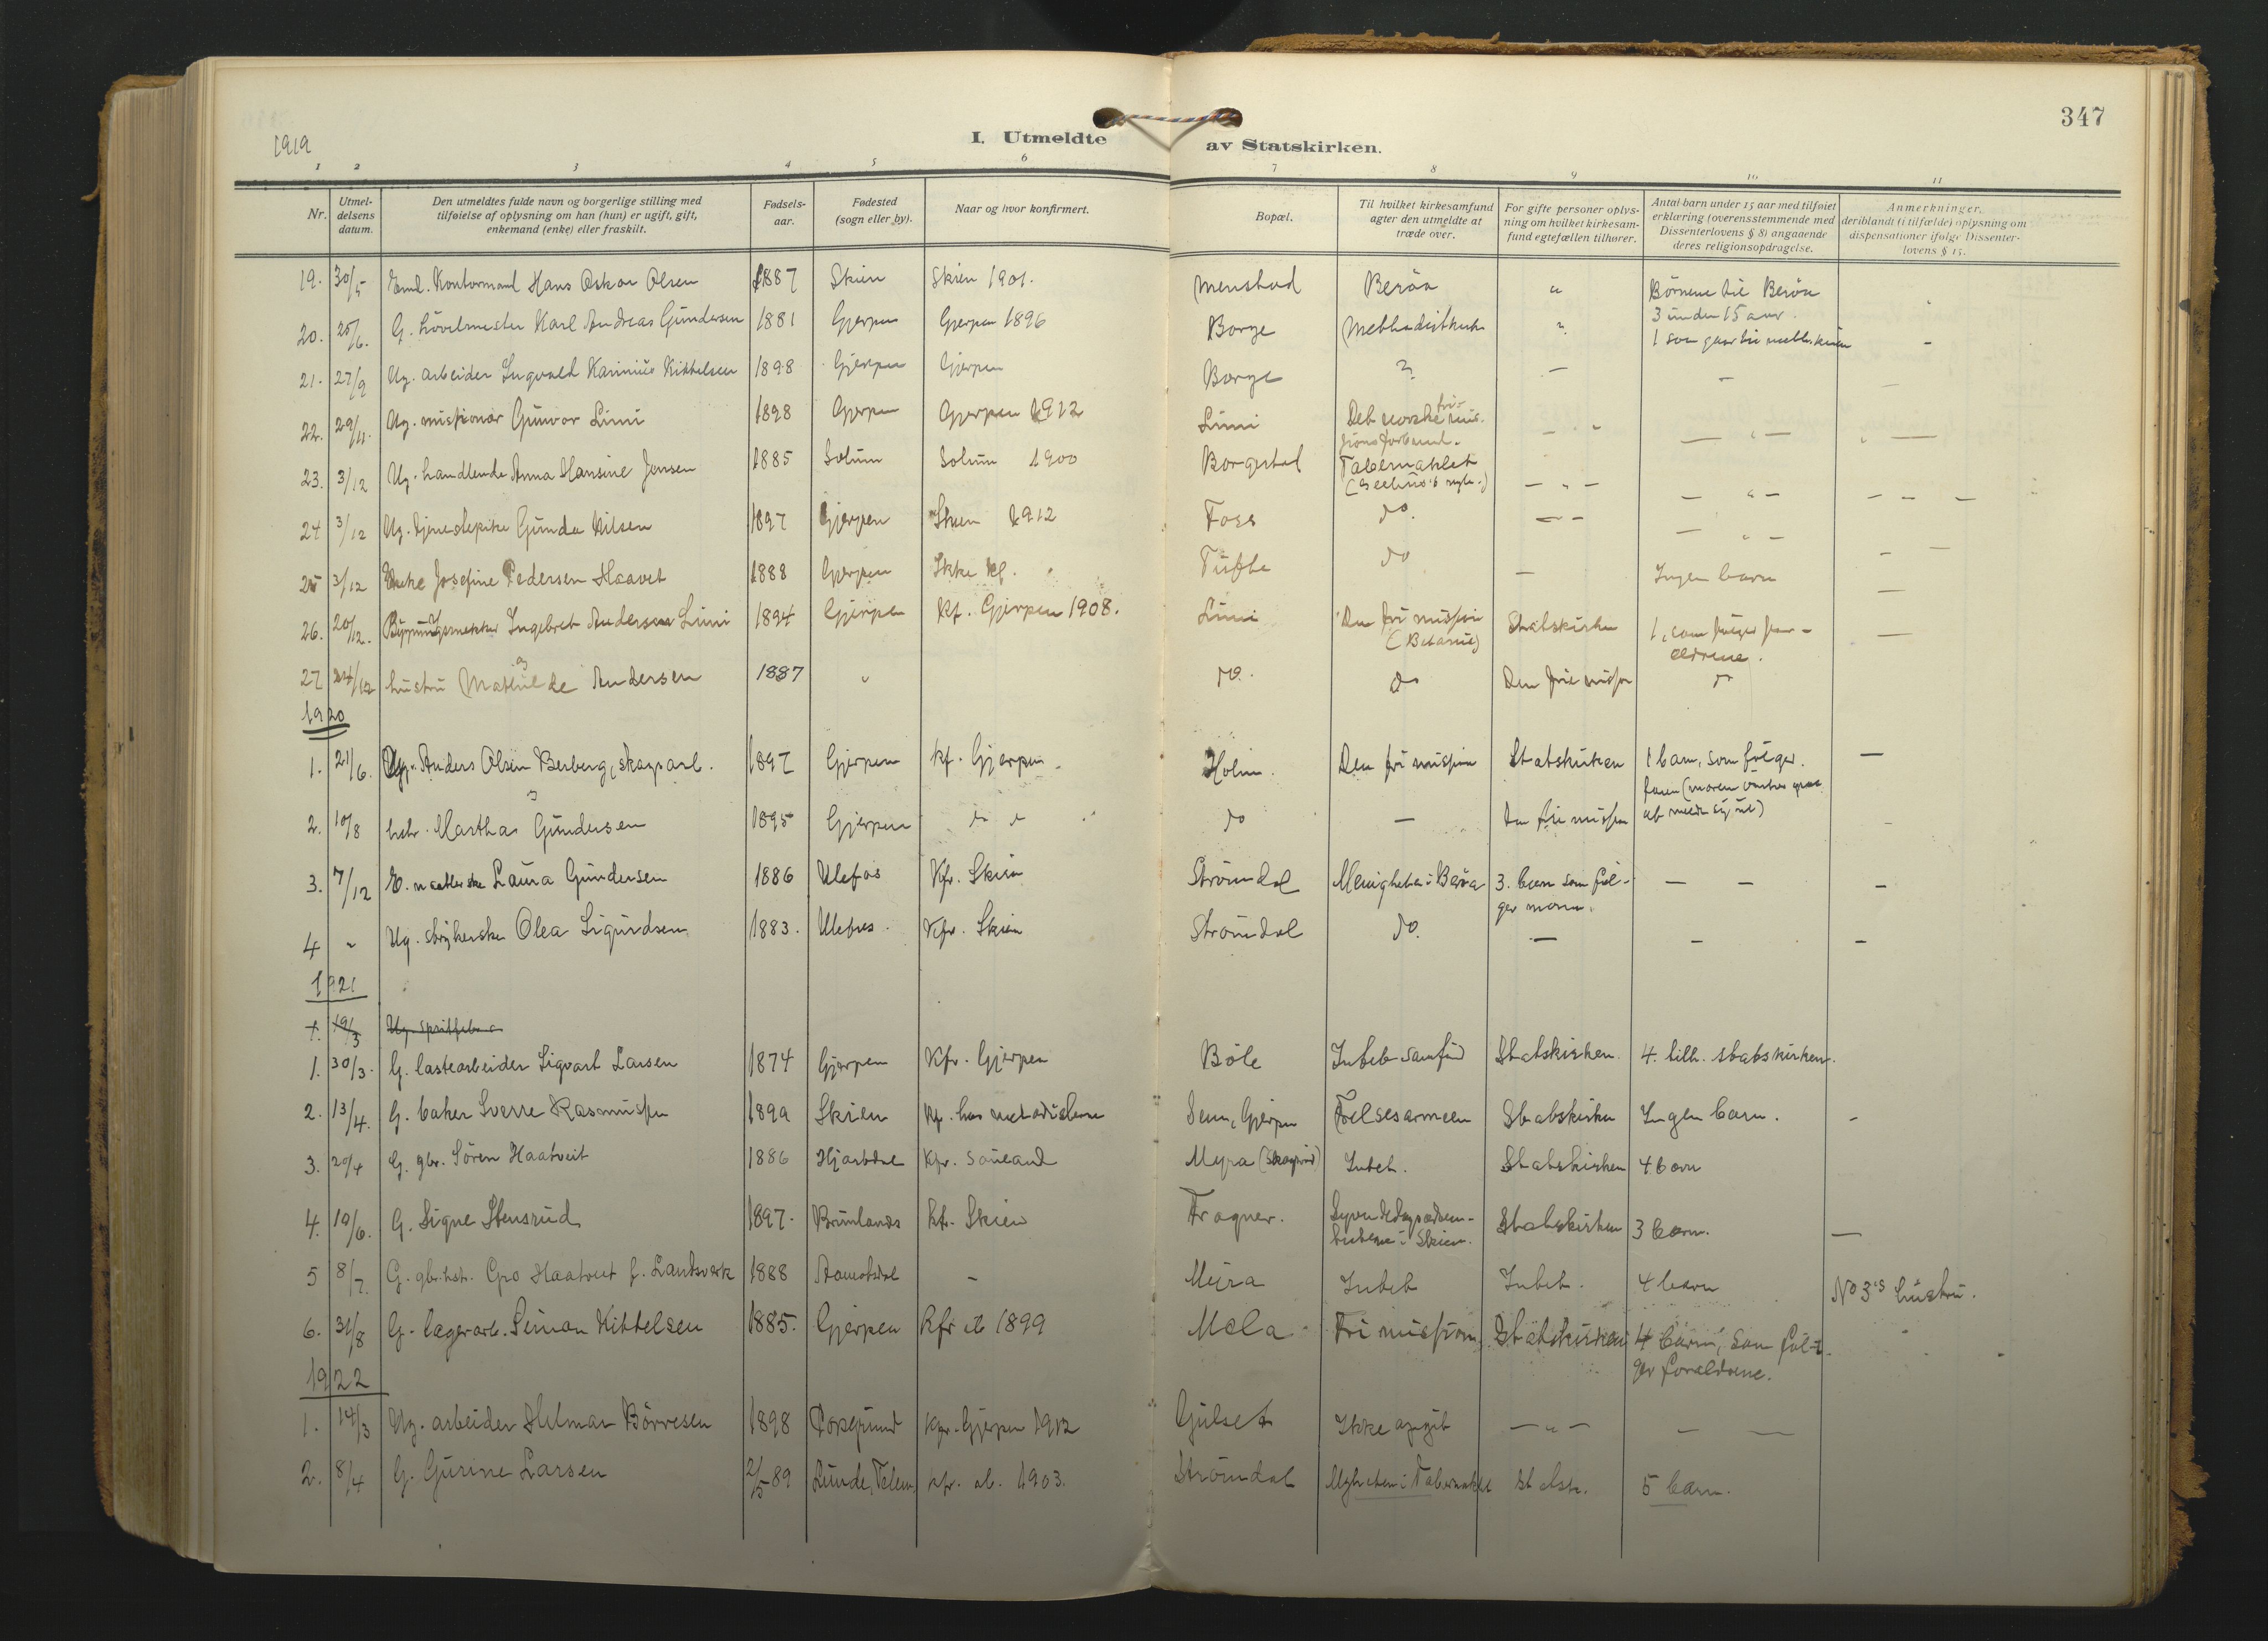 347
1919
I. Utmeldte av Statskirken.
1 2 3 4 5 6 7 8 9 10 11
Nr.
Utmel-
delsens
datum.
Den utmeldtes fulde navn og borgerlige stilling med
tilføielse af oplysning om han (hun) er ugift, gift,
enkemand (enke) eller fraskilt.
Fødsels-
aar.
Fødested
(sogn eller by).
Naar og hvor konfirmert.
Bopæl.
Til hvilket kirkesamfund
agter den utmeldte at
træde over.
For gifte personer oplys-
ning om hvilket kirkesam-
fund egtefællen tilhører.
Antal barn under 15 aar med tilføiet
erklæring (overensstemmende med
Dissenterlovens § 8) angaaende
deres religionsopdragelse.
Anmerkninger,
deriblandt (i tilfælde) oplysning om
dispensationer ifølge Dissenter-
lovens § 15.
19. 30/5 Kontormand Hans Oskar Olsen 1887 Skien Skien 1901. Menstad Berøa " Børnene til Berøa
20. 25/6. G. høvelmester Karl Andreas Gundersen 1881 Gjerpen Gjerpen 1896 Borge Methodistkirk ? 3 under 15 aar.
1 som gaar til -
21. 27/9 Ug. arbeider Ingvald Kittelsen 1898 Gjerpen Gjerpen Borge ? - - -
22. 29/11. Ug. missionær Gunvor Limi 1898 Gjerpen Gjerpen 1912 Limi Det norske mis-
fri-
sionsforbund. - " - " - " -
23. 3/12 Ug. handlende Anna Hansine Jensen 1885 Solum Solum 1900 Borgestad Tabernaklet
- " - - " - - - -
24 3/12 Ug. tjenestepike Gunda Nilsen 1897 Gjerpen Skien 1912 Foss do. - - - " -
25 3/12 Enke Josefine Pedersen Haavet 1888 Gjerpen Ikke kf. Tufte do - Ingen barn - -
26. 20/12. Ingebret Andersen Limi 1894 Gjerpen Kf. Gjerpen 1908. Limi Den fri mission
(Betania) Statskirken 1, som følger for-
ældrene. -
27 24/12 hustru Mathilde Andersen 1887 " do. do Den frie mission do
1920
1. 21/6. Anders Olsen Berberg, skogsarb. 1897 Gjerpen kf. Gjerpen. Holm. Den fri mission Statskirken 1 barn, som følger -
faren (moren
2. 10/8 hstr. Martha Gundersen 1895 Gjerpen do do do - Den fri mission at melde sig ut)
3. 7/12 E. Laura Gundersen 1886 Ulefos Kfr. Skien Strømdal Menigheten i Berøa 3. barn som føl-
ger moren. - - -
4 " Ug. strykerske Olea Sigurdsen 1883. Ulefos. Kfr. Skien Strømdal do. - - -
1921
1. 19/3 Ug.
1. 30/3. G. lastearbeider Sigvart Larsen 1874 Gjerpen Kfr. Gjerpen Bøle Intet samfund Statskirken. 4. tilh. statskirken.
2. 13/4. G. baker Sverre Rasmussen Skien Kf. hos metodisterne Gjerpen Frelsesarmeen Statskirken Ingen barn. -
3. 20/4 G. gbr. Søren Haatveit 1886 Hjartdal Kfr. Sauland Myra Intet. Statskirken 4 barn
4. 10/6. G. Signe Stensrud 1897. Brunlanes kfr. Skien Fragner. Syvendedagsadven-
tisterne i Skien. Statskirken 3 barn. -
5 8/7. G. gbr.hst. Gro Haatveit f. Landsverk 1888 - Myra Intet Intet. 4 barn No 3's hustru.
6. 31/8 G. lagerarb. Simon Kittelsen 1885. Gjerpen Kfr ib 1899 Mæla Fri mission Statskirken 4 barn, som føl-
ger forældrene.
1922
1. 14/3 Ug. arbeider Hilmar Børresen 1898 Porsgrund Kfr. Gjerpen 1912 Gulset Ikke opgit - " - - -
2. 8/4 G. Gurine Larsen 2/5 89 Lunde, Telem. kfr. ib. 1903. Strømdal Mgheten i Tabernaklet statsk. 5 barn.